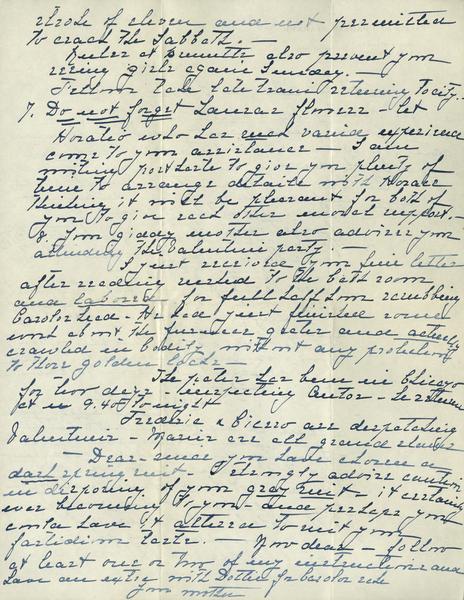 stroke of eleven and not permitted
to crash the Sabbath. —
Rules at permitte also prevent your
seeing girls again Sunday. —
Fellows take late train returning to city. —
7. Do not forget Lauras flowers — let
Horatio who has used varied experience
come to your assistance — I am
writing post haste to give you plenty of
time to arrange details with Horace
thinking it will be pleasant for both of
you to give each other moral support. —
8 Your giddy mother also advises your
attending the Valentine party —
I just received your fine letter
after reading rushed to the bath room
and labored for full half hour scrubbing
Carolos head — He had just finished some
work about the furnace grater and actually
crawled in bodily without any protection
to those golden locks —
The pater has been in Chicago
for two days — inspecting — returns
at 9.40 tonight
Fredric & Cicero are despatching
Valentines — are all grand
— Dear — since you have chosen a
dark spring suit — strongly advise caution
in disposing of your gray suit — it certainly
ever becoming to you — and perhaps you
could have it altered to suit your
fastidious taste. — Now dear — follow
at least one or two of my instructions and
have an extra with Dotted for
Your mother